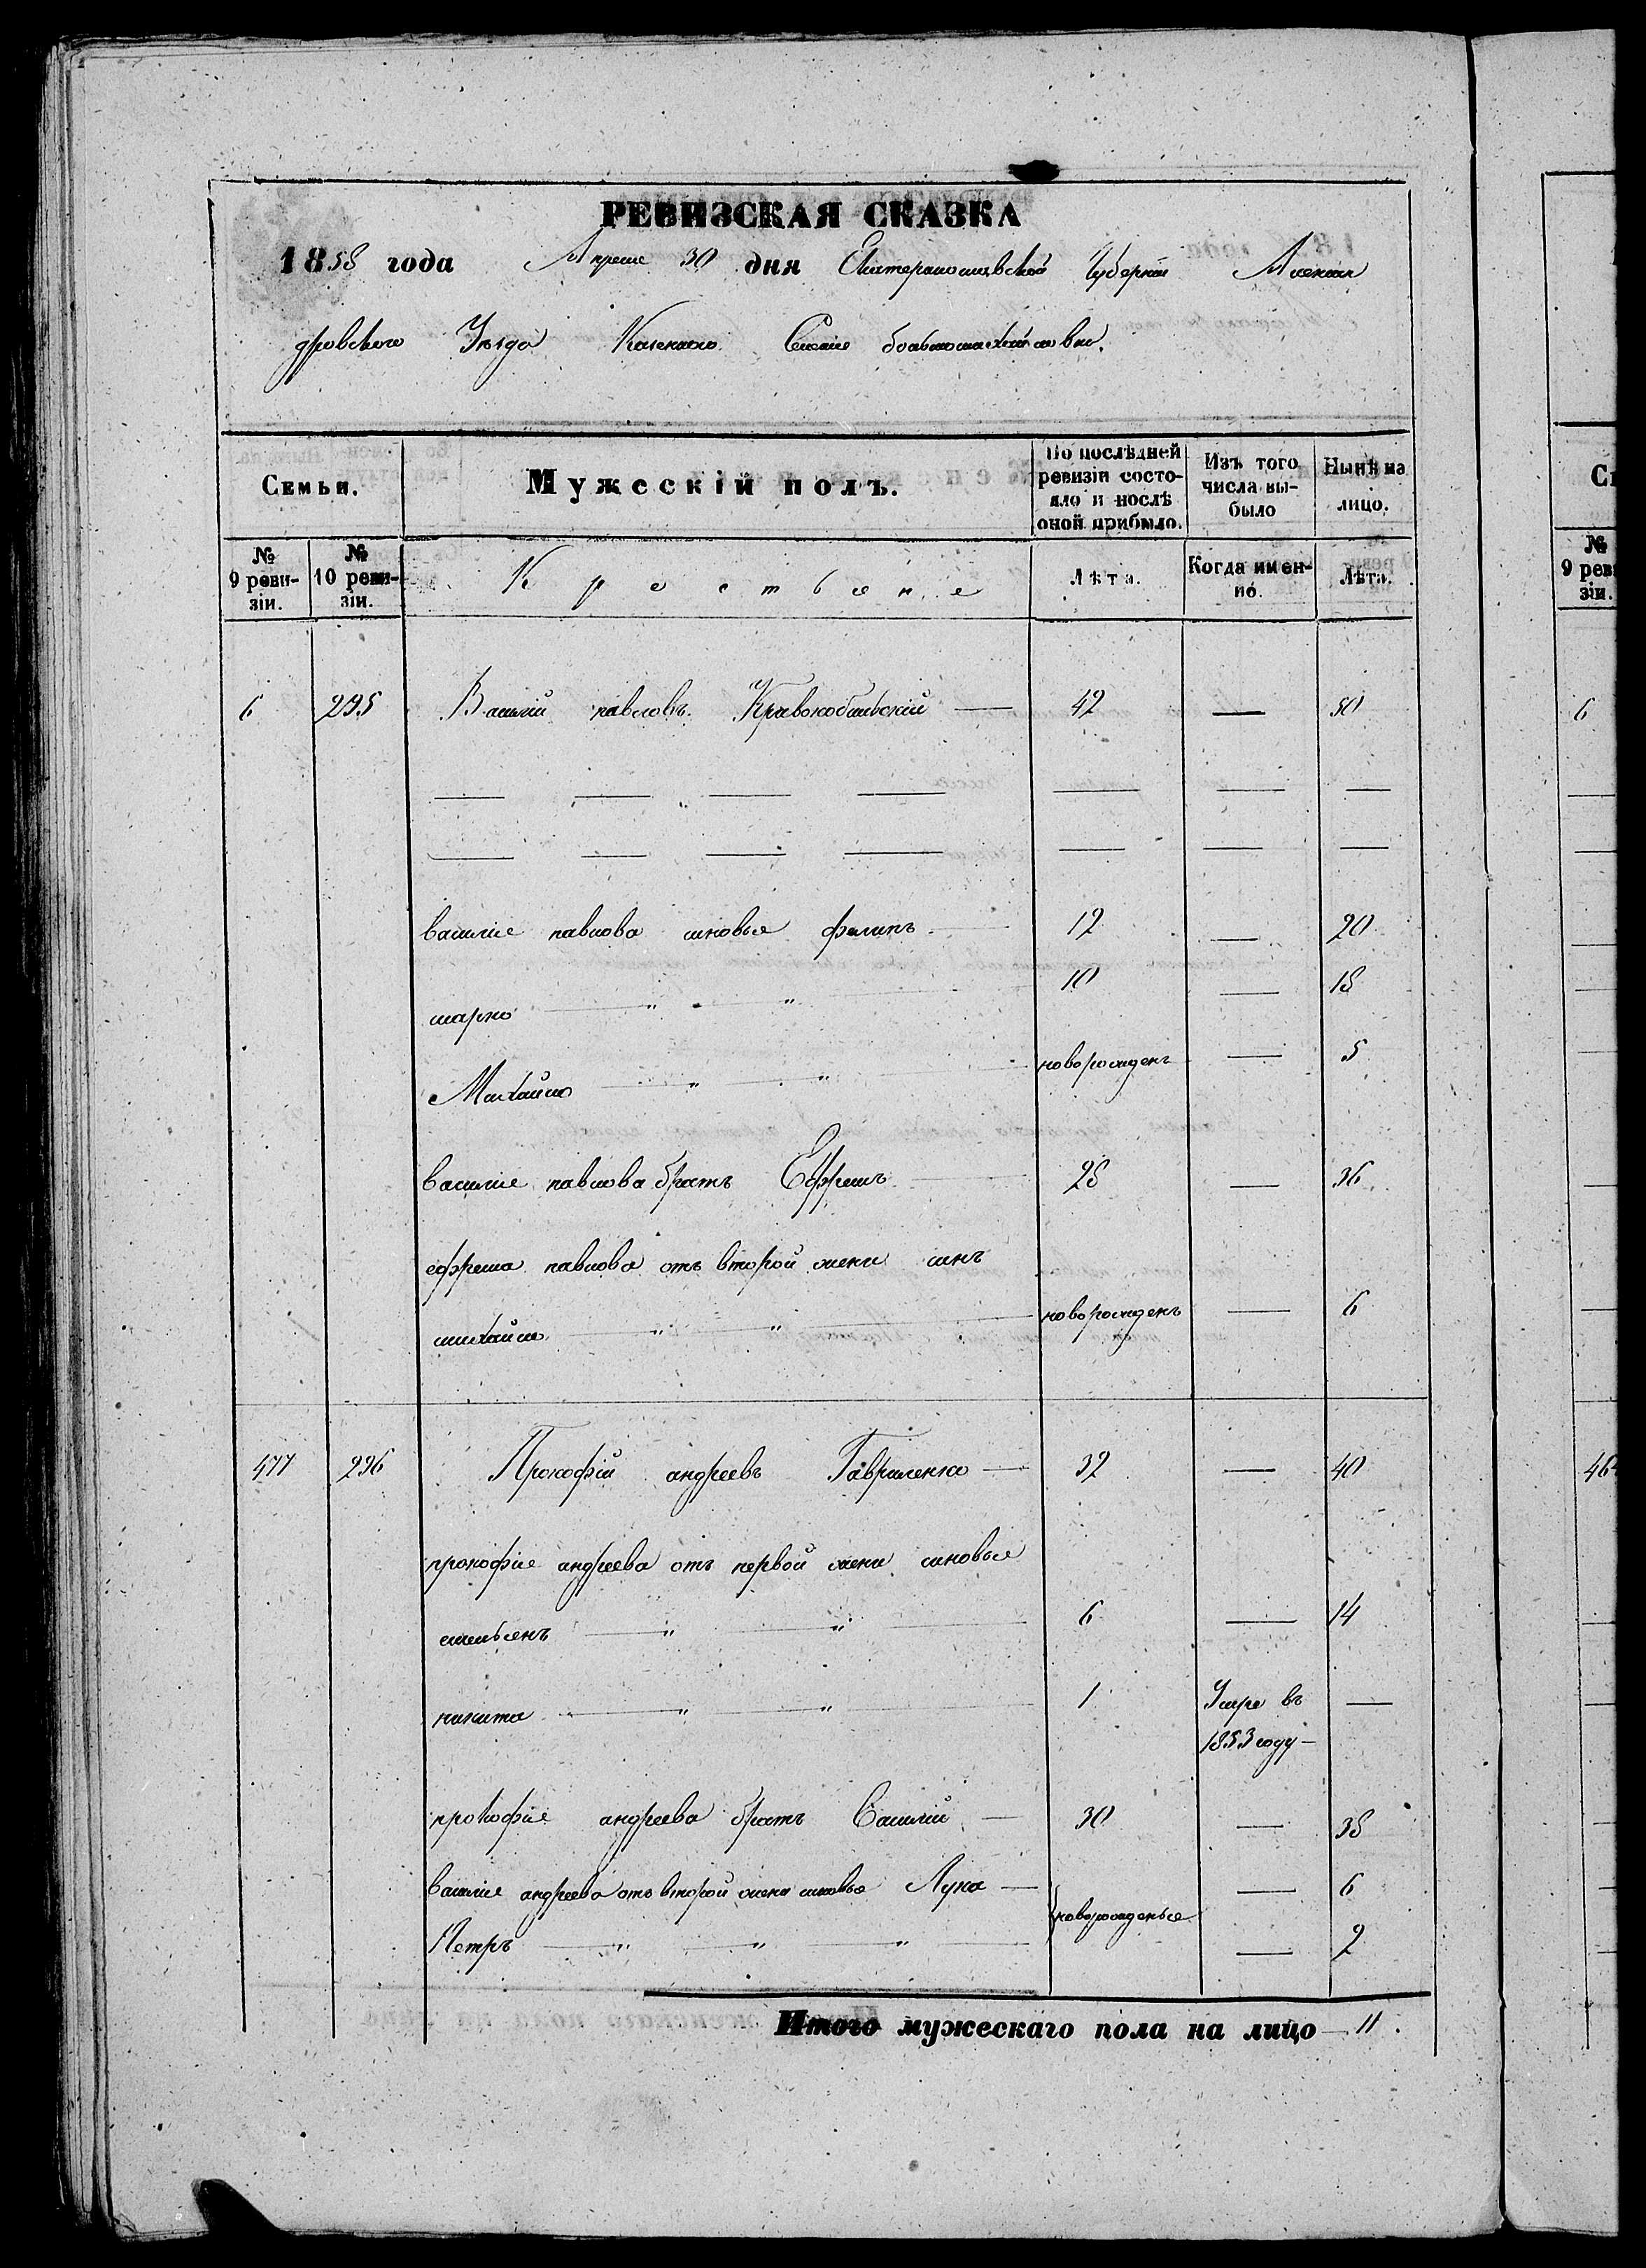 РЕВИЗСКАЯ СКАЗКА
1858 года Апреля 30 дня Екатеринославской Губернии Алексан
дровского Уезда Казенного Селение большомихайловки.
Семьи.
Мужескій полъ.
По послѣдней ревизіи состояло и послѣ оной прибыло.
Изъ того числа выбыло
Нынѣ на лицо.
№ 9 ревизіи.
№ 10 ревизіи.
Крестьяне
Лѣта.
Когда именно.
Лѣта.
6 295 Василій павловъ Кривокобильскій — 42 — 50
василіе павлова синовье филипъ 12 — 20
марко — " — " 10 — 18
Михайло — " — " новорожденъ — 5
василіе павлова братъ Ефремъ 28 — 36
ефрема павлова отъ второй жени синъ
михайло — " — " новорожденъ — 6
477 296 Прокофій андреевъ Гавриленко — 32 — 40
прокофіе андреева отъ первой жени синовье
емельенъ — " — " 6 — 14
никита — " — " 1 Умре въ —
1853 году —
прокофіе андреева братъ Василій — 30 — 38
василіе андреева отъ второй жени синовье Лука — — 6
новорожденые
Петръ — " — " — " — 2
Итого мужескаго пола на лицо — 11.
Се
№ 9 реви
зіи.
6
46